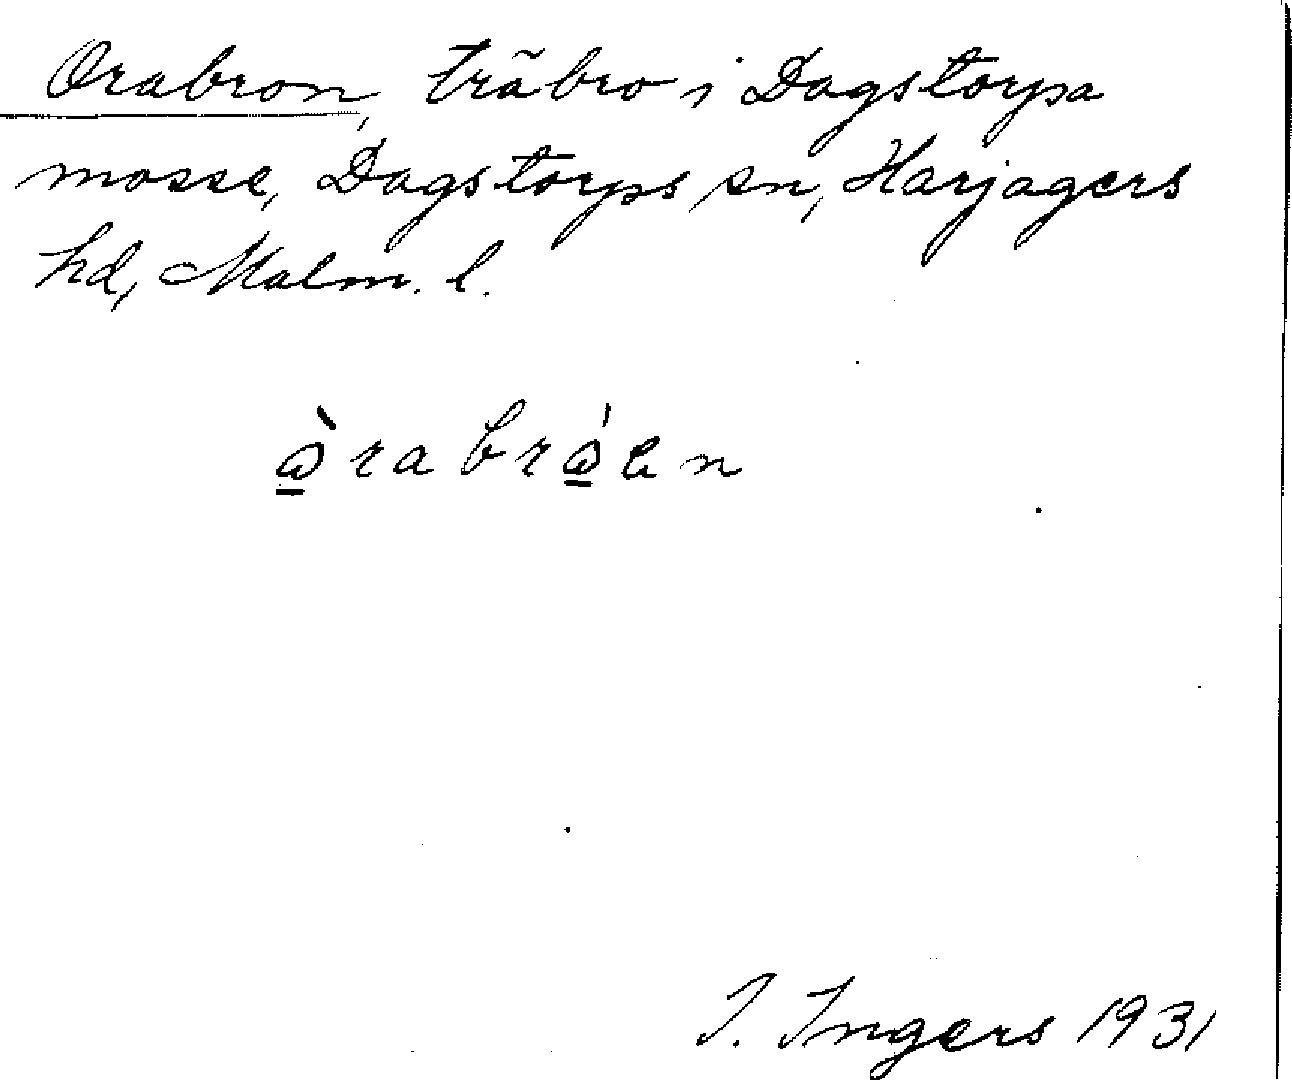 Orabron, träbro i Dagstorps
mosse, Dagstorps sn, Harjagers
hd, Malm. l.
ὼ̲rabrώ̲en
I. Ingers 1931